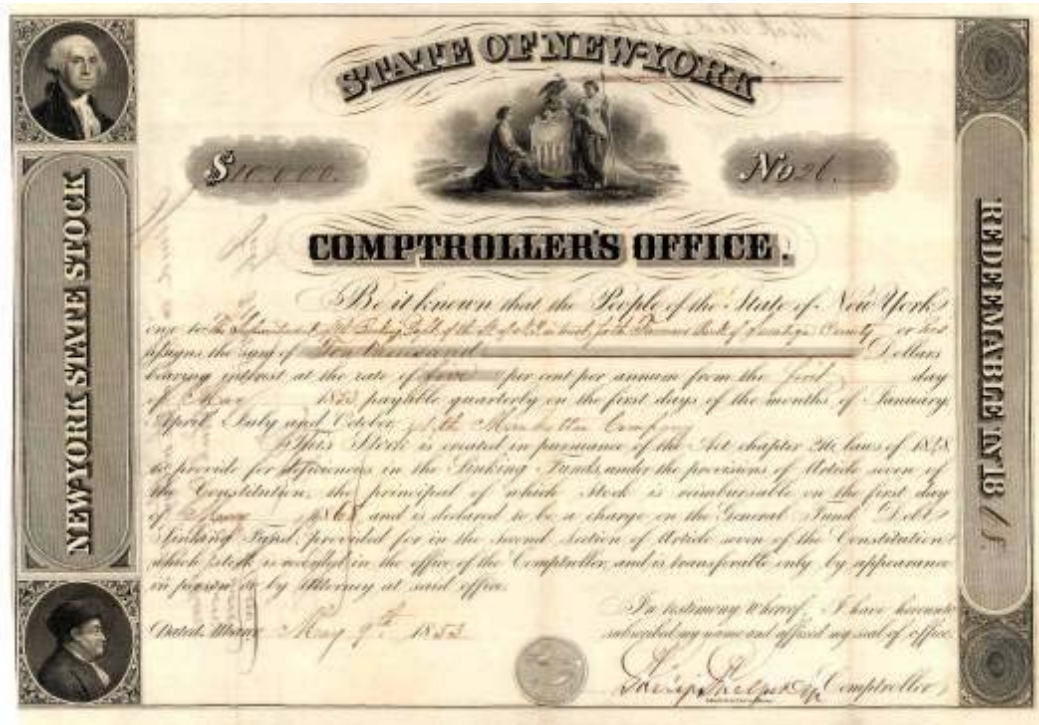 STATE OF NEW-YORK
$10.000.
No 26.
COMPTROLLER'S OFFICE.
NEW-YORK STATE STOCK
REDEEMABLE IN 18
Be it known that the People of the State of New York
owe to the County or his
Assigns the sum of Ten thousand Dollars
bearing interest at the rate of five per cent per annum from the first day
of May 1853 payable quarterly on the first days of the months of January
April, July and October, at the Manhattan Company
This Stock is created in pursuance of the Act chapter 216 laws of 1848
to provide for deficiences in the Sinking Funds, under the provisions of Article seven of
the Constitution, the principal of which Stock is reimbursable on the first day
of and is declared to be a charge on the General Fund Debt
Sinking Fund, provided for in the second section of Article seven of the Constitution
which Stock is in the office of the Comptroller, and is transferable only by appearance
in person or by Attorney at said office.
In testimony whereof, I have hereunto
subscribed my name and affixed my seal of office.
Dated, Albany May 9th 1853
Comptroller